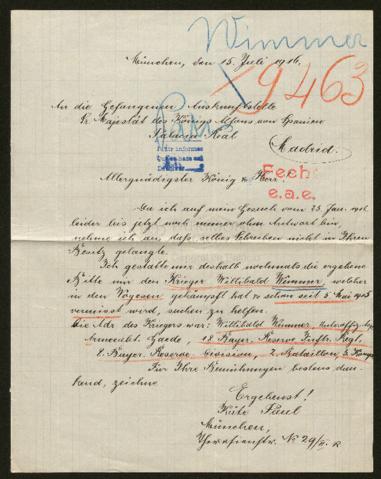 Wimmer
München, den 15. Juli 1916.
29463
An die Gefangenen Auskunftstelle
Sr. Majestät des Königs Alfons von Spanien
Palacio Real
Madrid.
Fech
e.a.e.
Allergnädigster König u. Herr!
Da ich auf mein Gesuch vom 23. Jan. 1916
leider bis jetzt noch immer ohne Antwort bin
nehme ich an, daß selbes Schreiben nicht in Ihren
Besitz gelangte.
Ich gestatte mir deshalb nochmals die ergebene
Bitte mir den Krieger Willibald Wimmer, welcher
in den Vogesen gekämpft hat u. schon seit 5. Mai 1915
vermisst wird, suchen zu helfen.
Die Adr. des Kriegers war: Willibald Wimmer,
Armeeabt. Gaede, 18. Bayer. Reserve Inftr. Regt.
8. Bayer. Reserve Division, 2. Bataillon, 5. Komp.
Für Ihre Bemühungen bestens dan-
kend, zeichne
Ergebenst!
Käte Paul
München,
Theresienstr. No 29/II. R